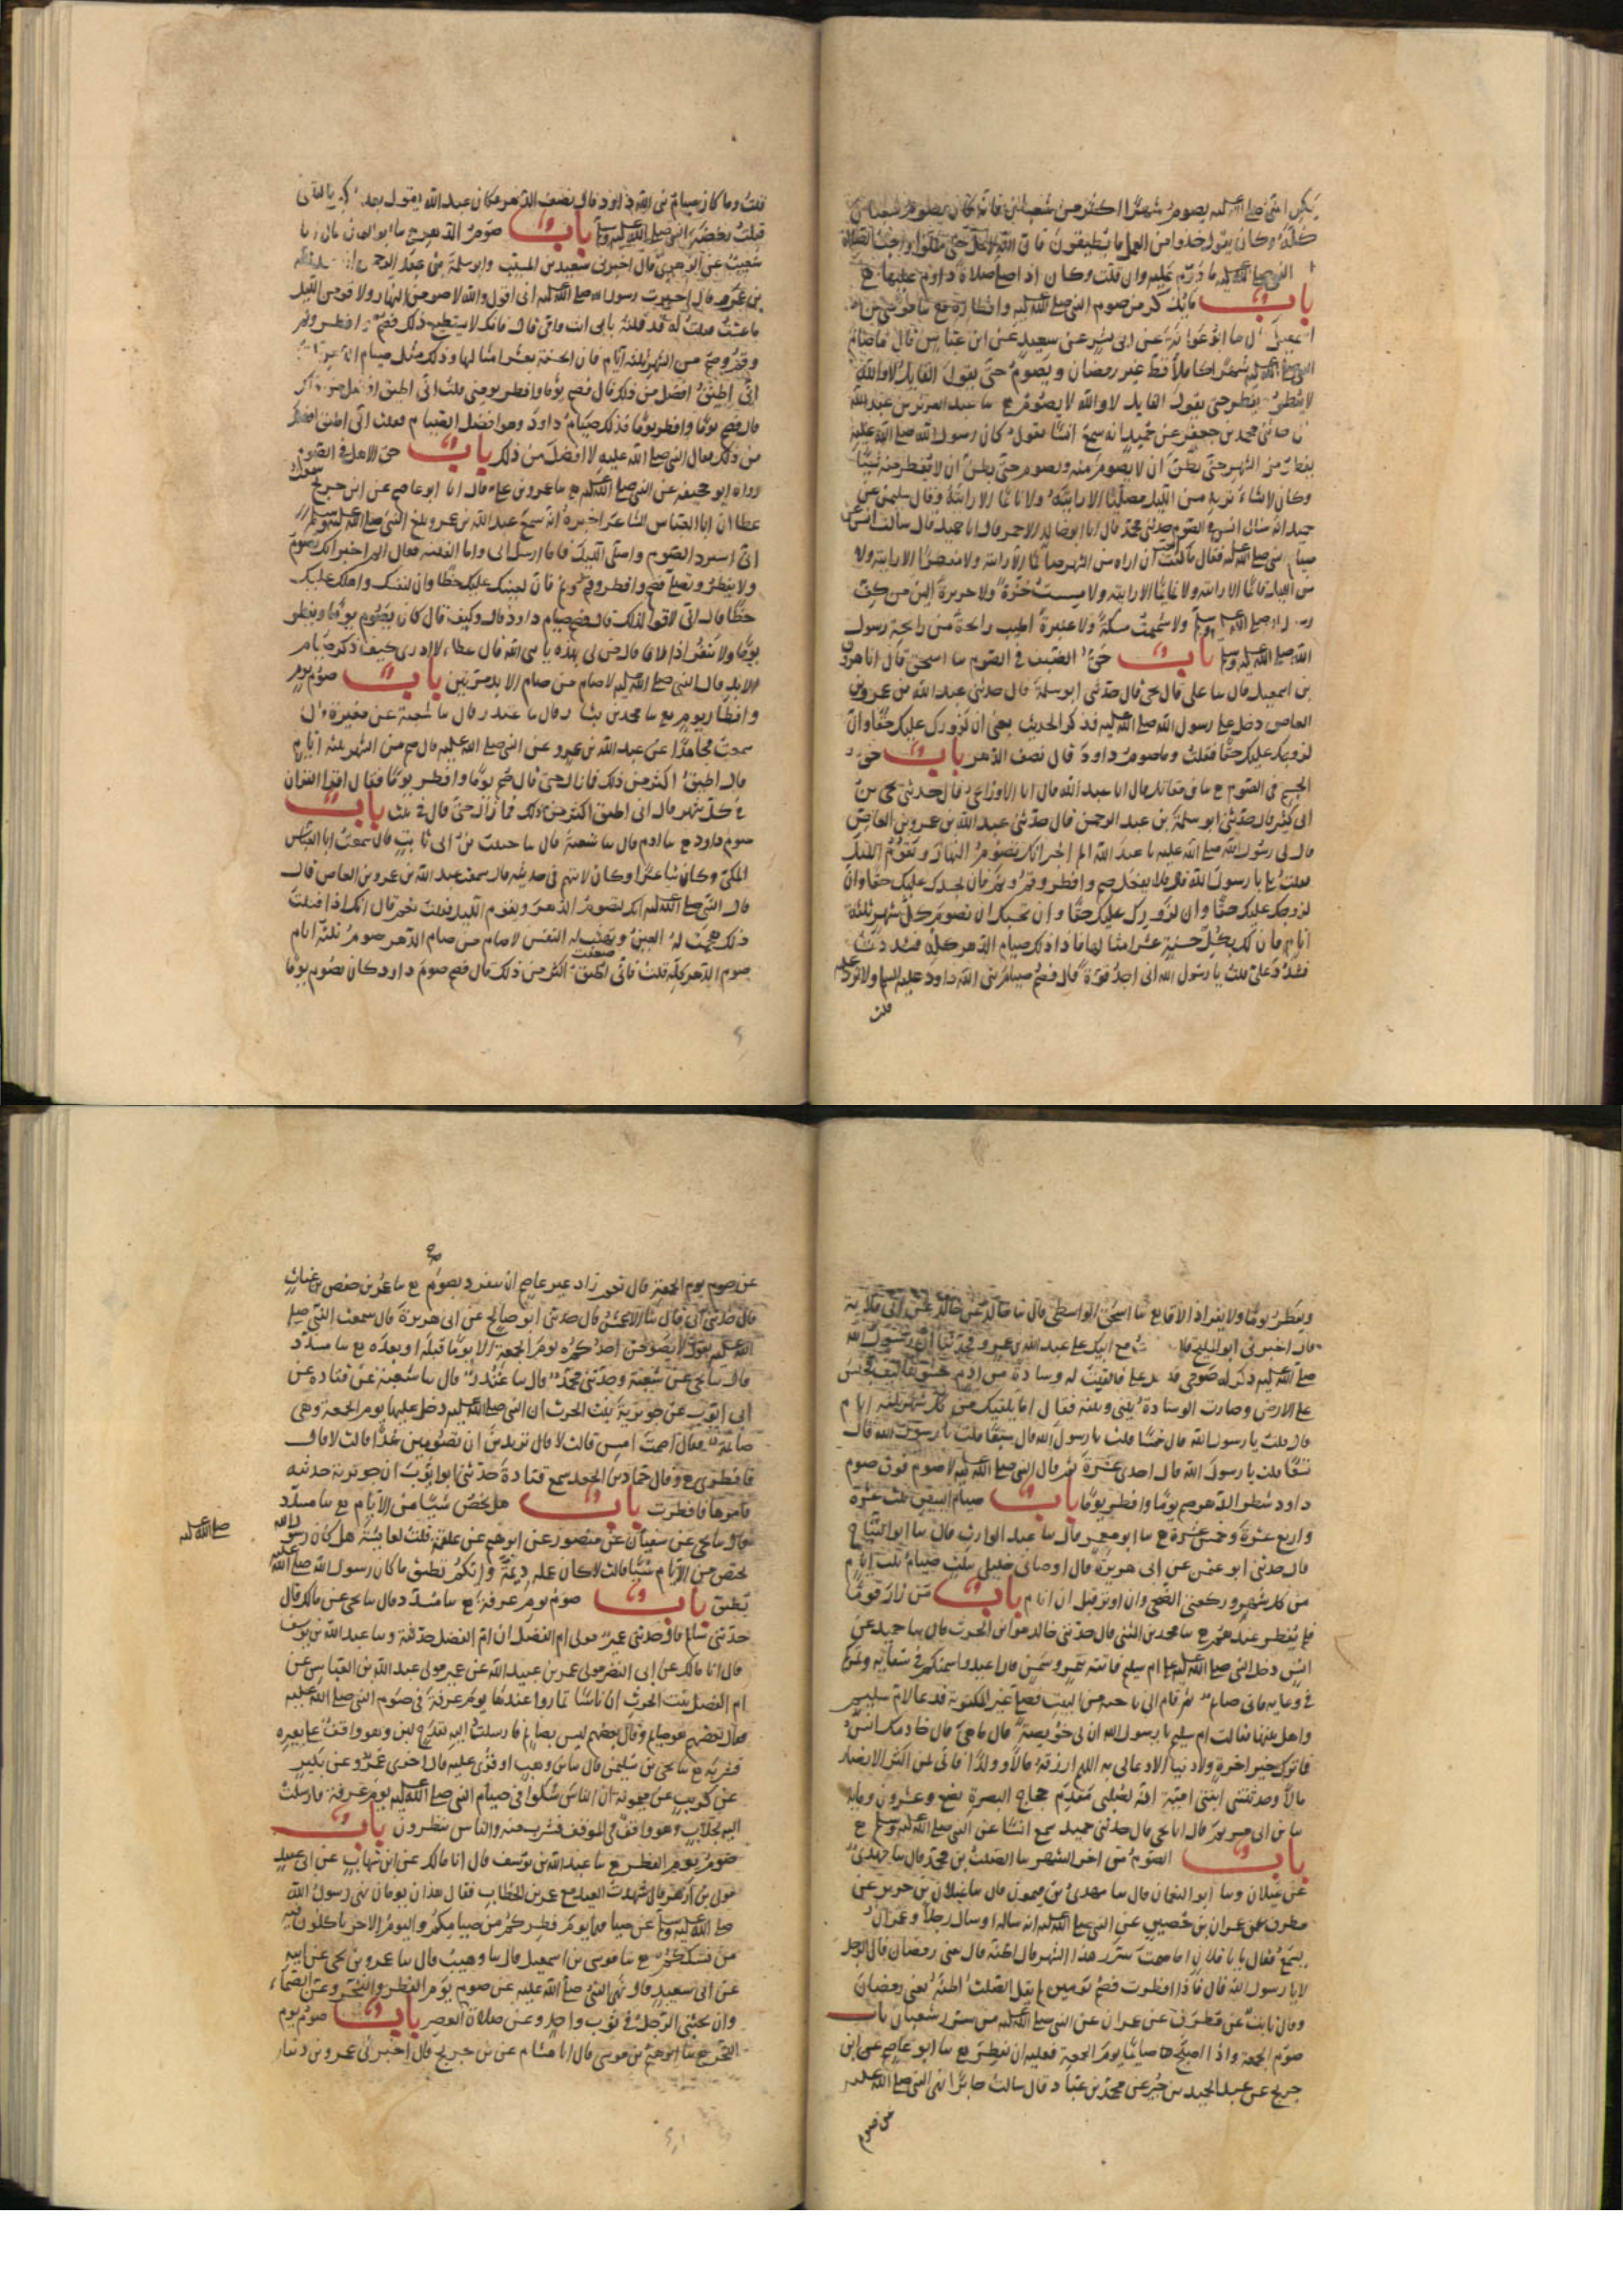 يكن النبي صلى الله عليه يصوم شهرا اكثر من شعبان فانه كان يصوم شعبان
كله وكان يقول خذوا من العمل ما تطيقون فان الله لا يمل حتى تملوا واحب الصلاة
الى النبي صلى الله عليه ما دووم عليه وان قلت وكان اذا صلى صلاة داوم عليها ح
باب ما يذكر من صوم النبي صلى الله عليه وافطاره ح سا موسى بن
اسمعيل قال سا ابو عوانة عن ابي بشر عن سعيد عن ابن عباس قال ما صام
النبي صلى الله عليه شهرا كاملا قط غير رمضان ويصوم حتى يقول القايل لا والله
لا يفطر ويفطر حتى يقول القايل لا والله لا يصوم ح سا عبد العزيز بن عبد الله
قال حدثني محمد بن جعفر عن حميد انه سمع انسا يقول كان رسول الله صلى الله عليه
يفطر من الشهر حتى يظن ان لا يصوم منه ويصوم حتى يظن ان لا يفطر منه شيئا
وكان لا تشاء تريه من الليل مصليا الا رايته ولا نائما الا رايته وقال سليمن عن
حميد انه سال انسا في الصوم حدثني محمد قال انا ابو خالد الاحمر قال انا حميد قال سالت انسا عن
صيام النبي صلى الله عليه فقال ما كنت احب ان اراه من الشهر صائما الا رايته ولا مفطرا الا رايته ولا
من الليل قائما الا رايته ولا نائما الا رايته ولا مسست خزة ولا حريرة الين من كف
رسول الله صلى الله عليه وسلم ولا شممت مسكة ولا عنبرة اطيب رائحة من رائحة رسول
الله صلى الله عليه وسلم باب حق الضيف في الصوم سا اسحق قال انا هرون
بن اسمعيل قال سا علي قال يحيى قال حدثني ابو سلمة قال حدثني عبد الله بن عمرو بن
العاص دخل علي رسول الله صلى الله عليه فذكر الحديث يعني ان لزورك عليك حقا وان
لزوجك عليك حقا فقلت وما صوم داود قال نصف الدهر باب حق
الجسم في الصوم ح سا بن مقاتل قال انا عبد الله قال انا الاوزاعي قال حدثني يحيى بن
ابي كثير قال حدثني ابو سلمة بن عبد الرحمن قال حدثني عبد الله بن عمرو بن العاص
قال لي رسول الله صلى الله عليه يا عبد الله الم اخبر انك تصوم النهار وتقوم الليل
فقلت بلى يا رسول الله قال فلا تفعل صم وافطر وقم ونم فان لجسدك عليك حقا وان
لزوجك عليك حقا وان لزورك عليك حقا وان بحسبك ان تصوم كل شهر ثلثة
ايام فان لك بكل حسنة عشر امثالها فاذا ذلك صيام الدهر كله فشددت
فشدد علي قلت يا رسول الله اني اجد قوة قال فصم صيام نبي الله داود عليه السلام ولا تزد عليه
قلت
قلت وما كان صيام نبي الله داود قال نصف الدهر فكان عبد الله يقول بعد ما كبر يا ليتني
قبلت رخصة النبي صلى الله عليه وسلم باب صوم الدهر ح سا ابو اليمان قال انا
شعيب عن الزهري قال اخبرني سعيد بن المسيب وابو سلمة بن عبد الرحمن ان عبد الله
بن عمرو قال اخبرت رسول الله صلى الله عليه اني اقول والله لاصومن النهار ولاقومن الليل
ما عشت فقلت له قد قلته بابي انت وامي قال فانك لا تستطيع ذلك فصم وافطر وقم
ونم وصم من الشهر ثلثة ايام فان الحسنة بعشر امثالها وذلك مثل صيام الدهر قلت
اني اطيق افضل من ذلك قال فصم يوما وافطر يومين قلت اني اطيق افضل من ذلك
قال فصم يوما وافطر يوما فذلك صيام داود وهو افضل الصيام فقلت اني اطيق افضل
من ذلك فقال النبي صلى الله عليه لا افضل من ذلك باب حق الاهل في الصوم
رواه ابو جحيفة عن النبي صلى الله عليه ح سا عمرو بن علي قال انا ابو عاصم عن ابن جريج سمعت
عطا ان ابا العباس الشاعر اخبره انه سمع عبد الله بن عمرو بلغ النبي صلى الله عليه وسلم
اني اسرد الصوم واصلي الليل فاما ارسل الي واما لقيته فقال الم اخبر انك تصوم
ولا تفطر وتصلي فصم وافطر وقم ونم فان لعينك عليك حظا وان لنفسك واهلك عليك
حظا قال اني لاقوى لذلك قال فصم صيام داود قال وكيف قال كان يصوم يوما ويفطر
يوما ولا يفر اذا لاقا قال من لي بهذه يا نبي الله قال عطاء لا ادري كيف ذكر صيام
الابد قال النبي صلى الله عليه لا صام من صام الابد مرتين باب صوم يوم
وافطار يوم ح سا محمد بن بشار قال سا غندر قال سا شعبة عن مغيرة قال
سمعت مجاهدا عن عبد الله بن عمرو عن النبي صلى الله عليه قال صم من الشهر ثلثة ايام
قال اطيق اكثر من ذلك فما زال حتى قال صم يوما وافطر يوما فقال اقرا القران
في كل شهر قال اني اطيق اكثر من ذلك فما زال حتى قال في ثلث باب
صوم داود ح سا ادم قال سا شعبة قال سا حبيب بن ابي ثابت قال سمعت ابا العباس
المكي وكان شاعرا وكان لا يتهم في حديثه قال سمعت عبد الله بن عمرو بن العاص قال
قال النبي صلى الله عليه انك لتصوم الدهر وتقوم الليل فقلت نعم قال انك اذا فعلت
ذلك هجمت له العين ونفهت له النفس لا صام من صام الدهر صوم ثلثة ايام
صوم الدهر كله قلت فاني اطيق اكثر من ذلك قال فصم صوم داود كان يصوم يوما
ويفطر يوما ولا يفر اذا لاقا ح سا اسحق الواسطي قال سا خالد عن خالد عن ابي قلابة
قال اخبرني ابو المليح قال مع ابيك على عبد الله بن عمرو فحدثنا ان رسول الله
صلى الله عليه ذكر له صومي فدخل علي فالقيت له وسادة من ادم حشوها ليف فجلس
على الارض وصارت الوسادة بيني وبينه فقال اما يكفيك من كل شهر ثلثة ايام
قال قلت يا رسول الله قال خمسا قلت يا رسول الله قال سبعا قلت يا رسول الله قال
تسعا قلت يا رسول الله قال احدى عشرة ثم قال النبي صلى الله عليه لا صوم فوق صوم
داود شطر الدهر صم يوما وافطر يوما باب صيام البيض ثلث عشرة
واربع عشرة وخمس عشرة ح سا ابو معمر قال سا عبد الوارث قال سا ابو التياح
قال حدثني ابو عثمن عن ابي هريرة قال اوصاني خليلي بثلث صيام ثلث ايام
من كل شهر وركعتي الضحى وان اوتر قبل ان انام باب من زار قوما
فلم يفطر عندهم ح سا محمد بن المثنى قال حدثني خالد هو ابن الحرث قال سا حميد عن
انس دخل النبي صلى الله عليه على ام سليم فاتته بتمر وسمن قال اعيدوا سمنكم في سقائه وتمركم
في وعائه فاني صائم ثم قام الى ناحية من البيت فصلى غير المكتوبة فدعا لام سليم
واهل بيتها فقالت ام سليم يا رسول الله ان لي خويصة قال ما هي قال خادمك انس
فما ترك خير اخرة ولا دنيا الا دعا لي به اللهم ارزقه مالا وولدا فاني لمن اكثر الانصار
مالا وحدثتني ابنتي امينة انه لصلبي مقدم حجاج البصرة بضع وعشرون ومائة
سا بن ابي مريم قال انا يحيى قال حدثني حميد سمع انسا عن النبي صلى الله عليه وسلم ح
باب الصوم من اخر الشهر سا الصلت بن محمد قال سا مهدي
عن غيلان وسا ابو النعمان قال سا مهدي بن ميمون قال سا غيلان بن جرير عن
مطرف عن عمران بن حصين عن النبي صلى الله عليه انه ساله او سال رجلا وعمران
يسمع فقال يا با فلان اما صمت سرر هذا الشهر قال اظنه قال يعني رمضان قال الرجل
لا يا رسول الله قال فاذا افطرت فصم يومين لم يقل الصلت اظنه يعني رمضان
وقال ثابت عن مطرف عن عمران عن النبي صلى الله عليه من سرر شعبان باب
صوم الجمعة واذا اصبح صائما يوم الجمعة فعليه ان يفطر ح سا ابو عاصم عن ابن
جريج عن عبد الحميد بن جبير عن محمد بن عباد قال سالت جابرا انهى النبي صلى الله عليه
عن صوم
عن صوم يوم الجمعة قال نعم زاد غير عاصم ان ينفرد بصوم ح سا عمر بن حفص بن غياث
قال حدثني ابي قال سا الاعمش قال حدثني ابو صالح عن ابي هريرة قال سمعت النبي صلى
الله عليه يقول لا يصومن احدكم يوم الجمعة الا يوما قبله او بعده ح سا مسدد
قال سا يحيى عن شعبة وحدثني محمد قال سا غندر قال سا شعبة عن قتادة عن
ابي ايوب عن جويرية بنت الحرث ان النبي صلى الله عليه دخل عليها يوم الجمعة وهي
صائمة فقال اصمت امس قالت لا قال تريدين ان تصومين غدا قالت لا قال
فافطري ح وقال حماد بن الجعد سمع قتادة حدثني ابو ايوب ان جويرية حدثته
فامرها فافطرت باب هل يخص شيئا من الايام ح سا مسدد
قال سا يحيى عن سفيان عن منصور عن ابرهيم عن علقمة قلت لعائشة هل كان رسول الله
صلى الله عليه
يختص من الايام شيئا قالت لا كان عمله ديمة وايكم يطيق ما كان رسول الله صلى الله عليه
يطيق باب صوم يوم عرفة ح سا مسدد قال سا يحيى عن مالك قال
حدثني سالم قال حدثني عمير مولى ام الفضل ان ام الفضل حدثته وسا عبد الله بن يوسف
قال انا مالك عن ابي النضر مولى عمر بن عبيد الله عن عمير مولى عبد الله بن العباس عن
ام الفضل بنت الحرث ان ناسا تماروا عندها يوم عرفة في صوم النبي صلى الله عليه
فقال بعضهم هو صائم وقال بعضهم ليس بصائم فارسلت اليه بقدح لبن وهو واقف على بعيره
فشربه ح سا يحيى بن سليمن قال سا بن وهب او قرئ عليه قال اخبرني عمرو عن بكير
عن كريب عن ميمونة ان الناس شكوا في صيام النبي صلى الله عليه يوم عرفة فارسلت
اليه بحلاب وهو واقف في الموقف فشرب منه والناس ينظرون باب
صوم يوم الفطر ح سا عبد الله بن يوسف قال انا مالك عن ابن شهاب عن ابي عبيد
مولى بن ازهر قال شهدت العيد مع عمر بن الخطاب فقال هذان يومان نهى رسول الله
صلى الله عليه وسلم عن صيامهما يوم فطركم من صيامكم واليوم الاخر تاكلون فيه
من نسككم ح سا موسى بن اسمعيل قال سا وهيب قال سا عمرو بن يحيى عن ابيه
عن ابي سعيد قال نهى النبي صلى الله عليه عن صوم يوم الفطر والنحر وعن الصماء
وان يحتبي الرجل في ثوب واحد وعن صلاة العصر باب صوم يوم
النحر ح سا ابرهيم بن موسى قال انا هشام عن بن جريج قال اخبرني عمرو بن دينار